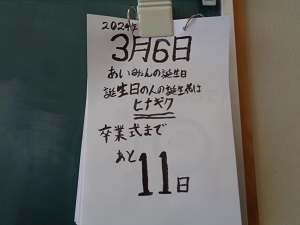 2024年
3月6日
あいみょんの誕生日
誕生日の人の誕生花は
ヒナギク
卒業式まで
あと
11日